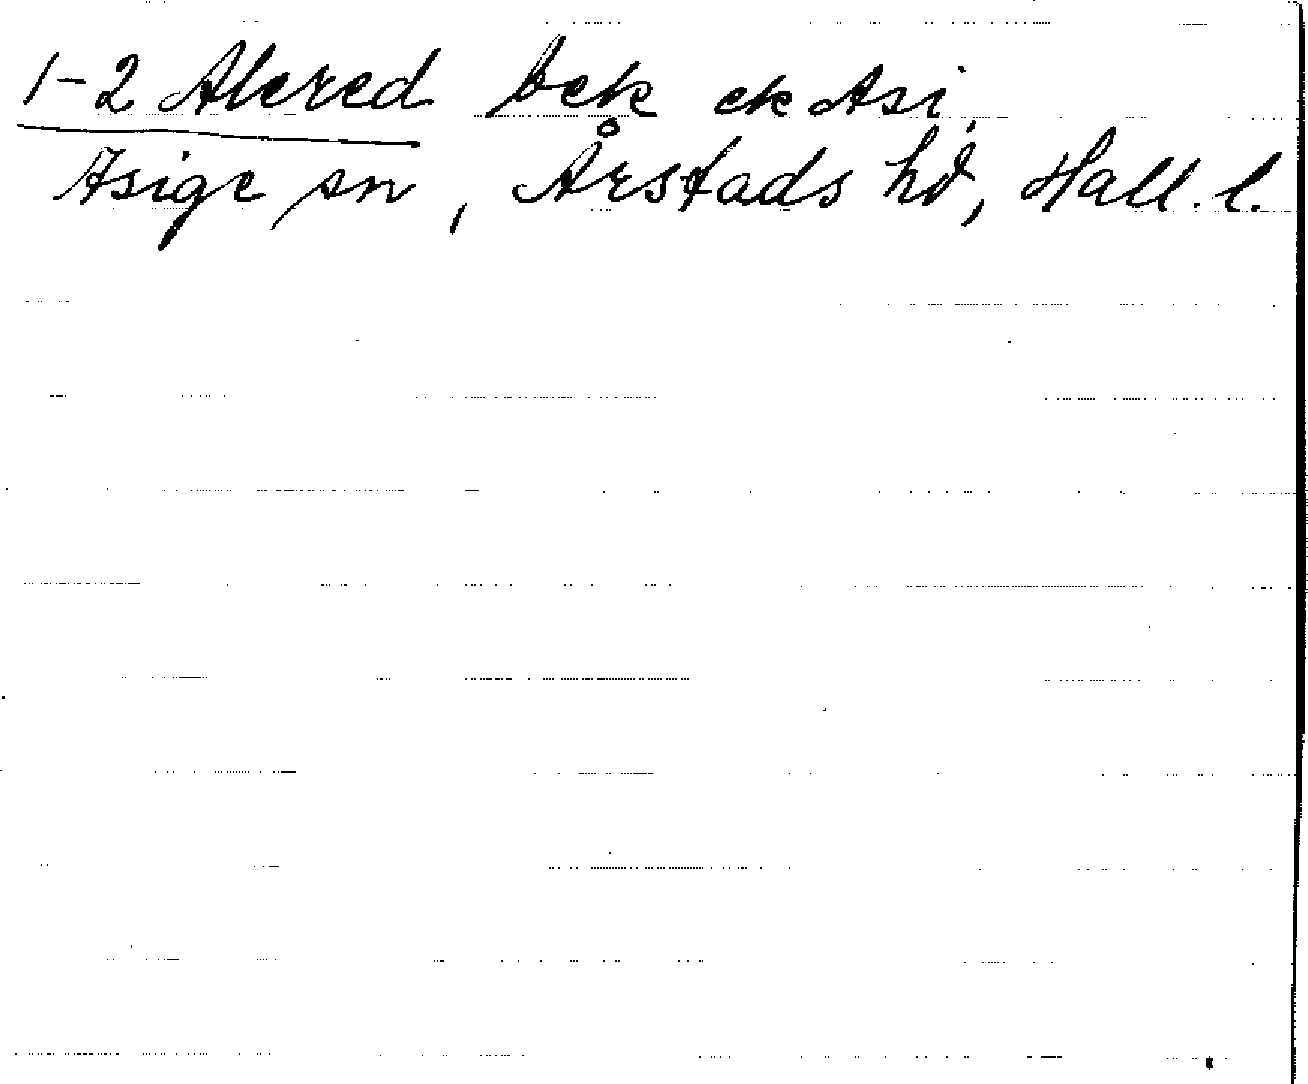 1-2 Alered bek ek Asi,
Asige sn, Årstads hd, Hall. l.